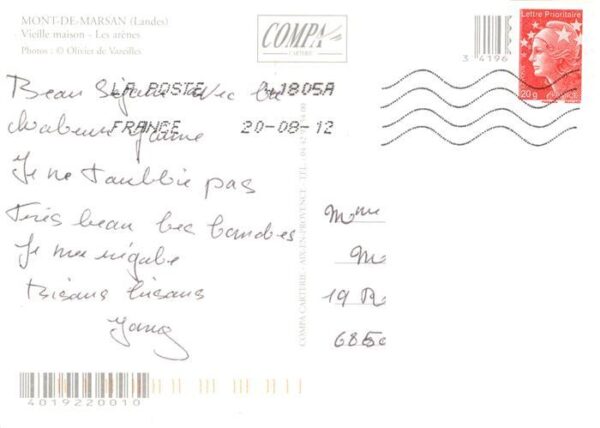 MONT-DE-MARSAN (Landes)
Vieille maison - Les arènes
Photos : © Olivier de Vazeilles
COMPA
CARTERIE
3 4196
Lettre Prioritaire
20g
FRANCE
LA POSTE 41805A
FRANCE 20-08-12
Beau Séjour avec la
chaleur
Je ne t'aublie pas
Très beau les Landes
Je me régale
Bisous bisous
COMPA CARTERIE - AIX-EN-PROVENCE - TEL.
Mme
M
19 R
6850
4019220010